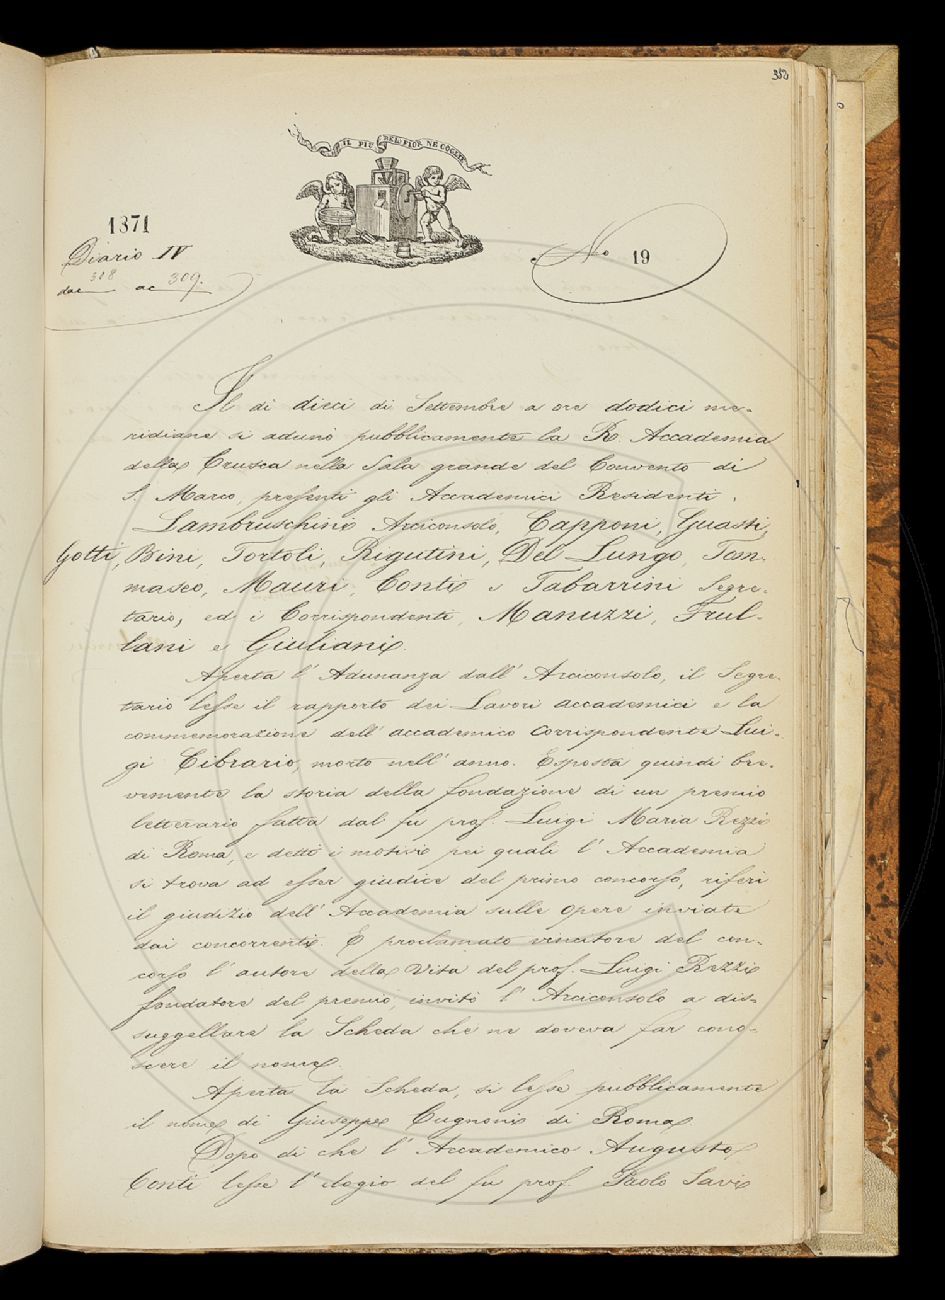 352
IL PIÙ BEL FIOR NE COGLIE
1871
Diario IV
dac 308 ac 309.
No 19
Il dì dieci di Settembre a ore dodici me-
ridiane si adunò pubblicamente la R. Accademia
della Crusca nella Sala grande del Convento di
S. Marco, presenti gli Accademici Residenti,
Lambruschini Arciconsolo, Capponi, Guasti,
Gotti, Bini, Tortoli, Rigutini, Del Lungo, Tom-
maseo, Mauri, Conti e Tabarrini Segre-
tario, ed i Corrispondenti, Manuzzi, Frul-
lani e Giuliani.
Aperta l'Adunanza dall'Arciconsolo, il Segre-
tario lesse il rapporto dei Lavori accademici e la
commemorazione dell'accademico Corrispondente Lui-
gi Cibrario, morto nell'anno. Esposta quindi bre-
vemente la storia della fondazione di un premio
letterario fatta dal fu prof. Luigi Maria Rezzi
di Roma, e detti i motivi pei quali l'Accademia
si trova ad esser giudice del primo concorso, riferì
il giudizio dell'Accademia sulle Opere inviate
dai concorrenti. E proclamato vincitore del con-
corso l'autore della Vita del prof. Luigi Rezzi
fondatore del premio, invitò l'Arciconsolo a dis-
suggellare la Scheda che ne doveva far cono-
scere il nome.
Aperta la Scheda, si lesse pubblicamente
il nome di Giuseppe Cugnoni di Roma.
Dopo di che l'Accademico Augusto
Conti lesse l'elogio del fu prof. Paolo Savi